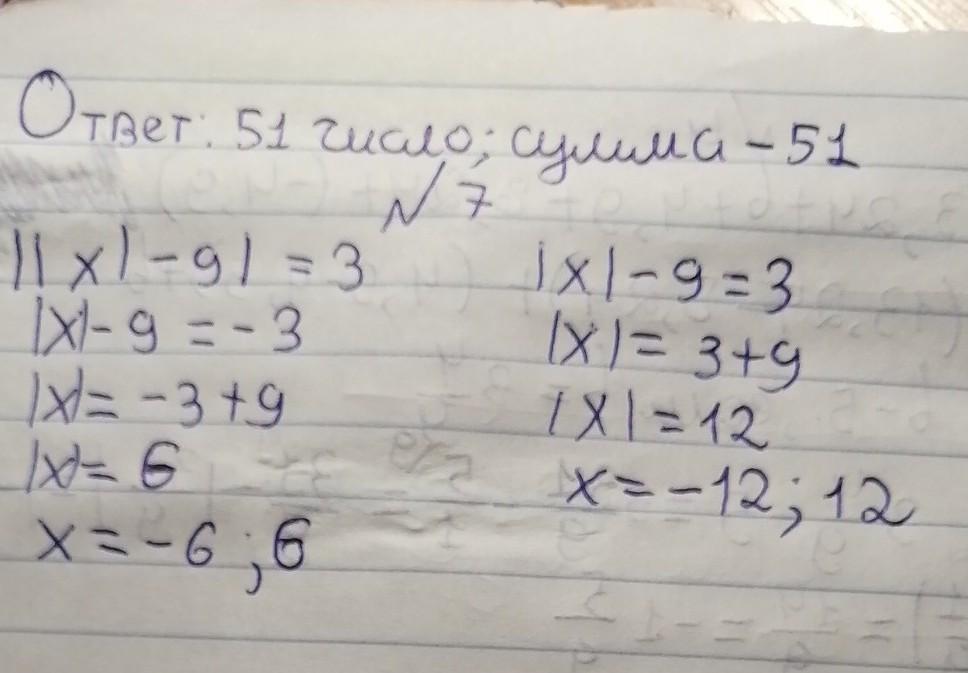 Ответ: 51 число; сумма - 51
№7
||x| - 9| = 3
|x| - 9 = -3
|x| = -3 + 9
|x| = 6
x = -6; 6
|x| - 9 = 3
|x| = 3 + 9
|x| = 12
x = -12; 12